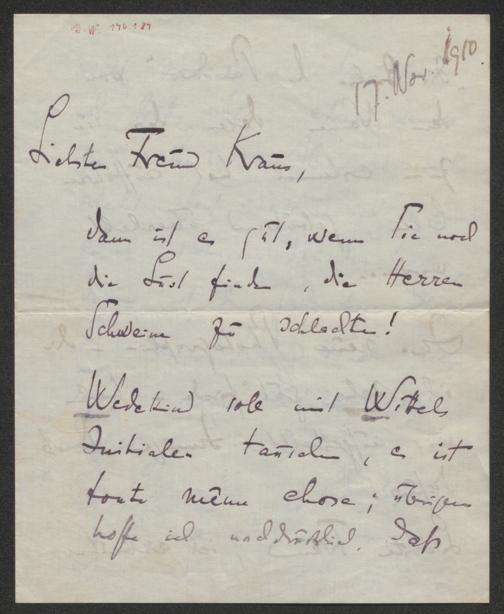 17. Nov. 1910.
Liebster Freund Kraus,
dann ist es gut, wenn Sie noch
die Lust finden, die Herren
Schweine zu schlachten!
Wedekind soll mit Wittels
Initialen tauschen, es ist
toute même chose; übrigens
hoffe ich nachdrücklich, daß